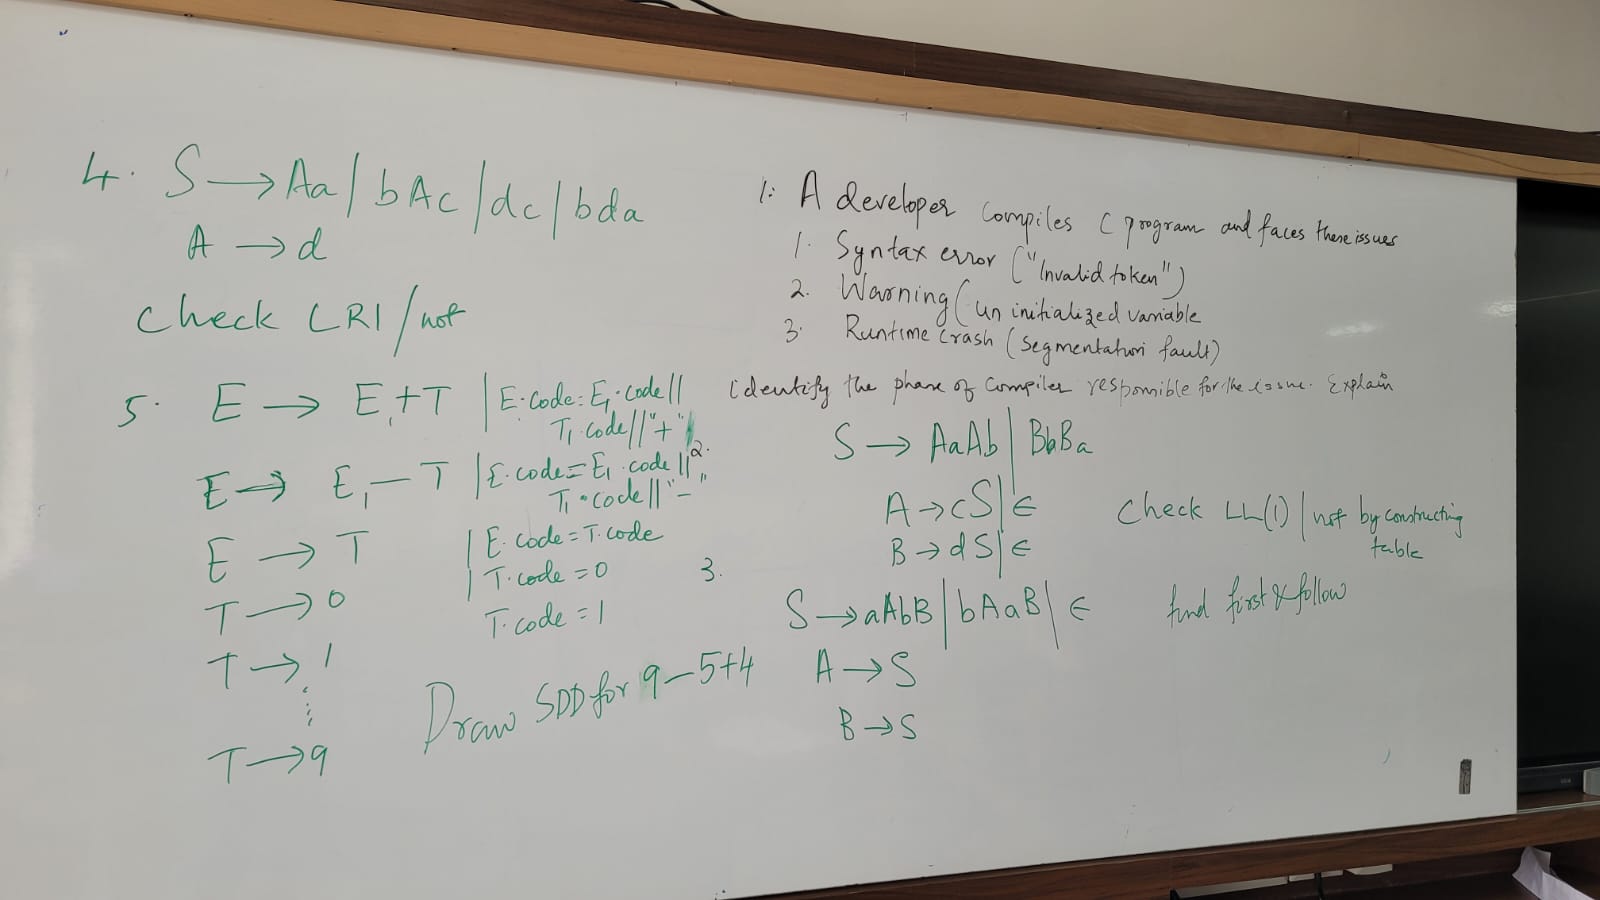 4. S → Aa | bAc | dc | bda
A → d
Check LR1 / not
5. E → E₁+T | E.code = E₁.code ||
T₁.code || "+"
E → E₁ – T | E.code = E₁.code ||
T₁.code || "–"
E → T | E.code = T.code
T → 0 | T.code = 0
T → 1 T.code = 1
⋮
T → 9
Draw SDD for 9–5+4
1: A developer compiles C program and faces these issues
1. Syntax error ("Invalid token")
2. Warning (un initialized variable
3. Runtime crash (segmentation fault)
identify the phase of compiler responsible for the issue. Explain
2. S → AaAb | BbBa
A → cS | ∈
B → dS | ∈
Check LL(1) | not by constructing
table
3. S → aAbB | bAaB | ∈ find first & follow
A → S
B → S